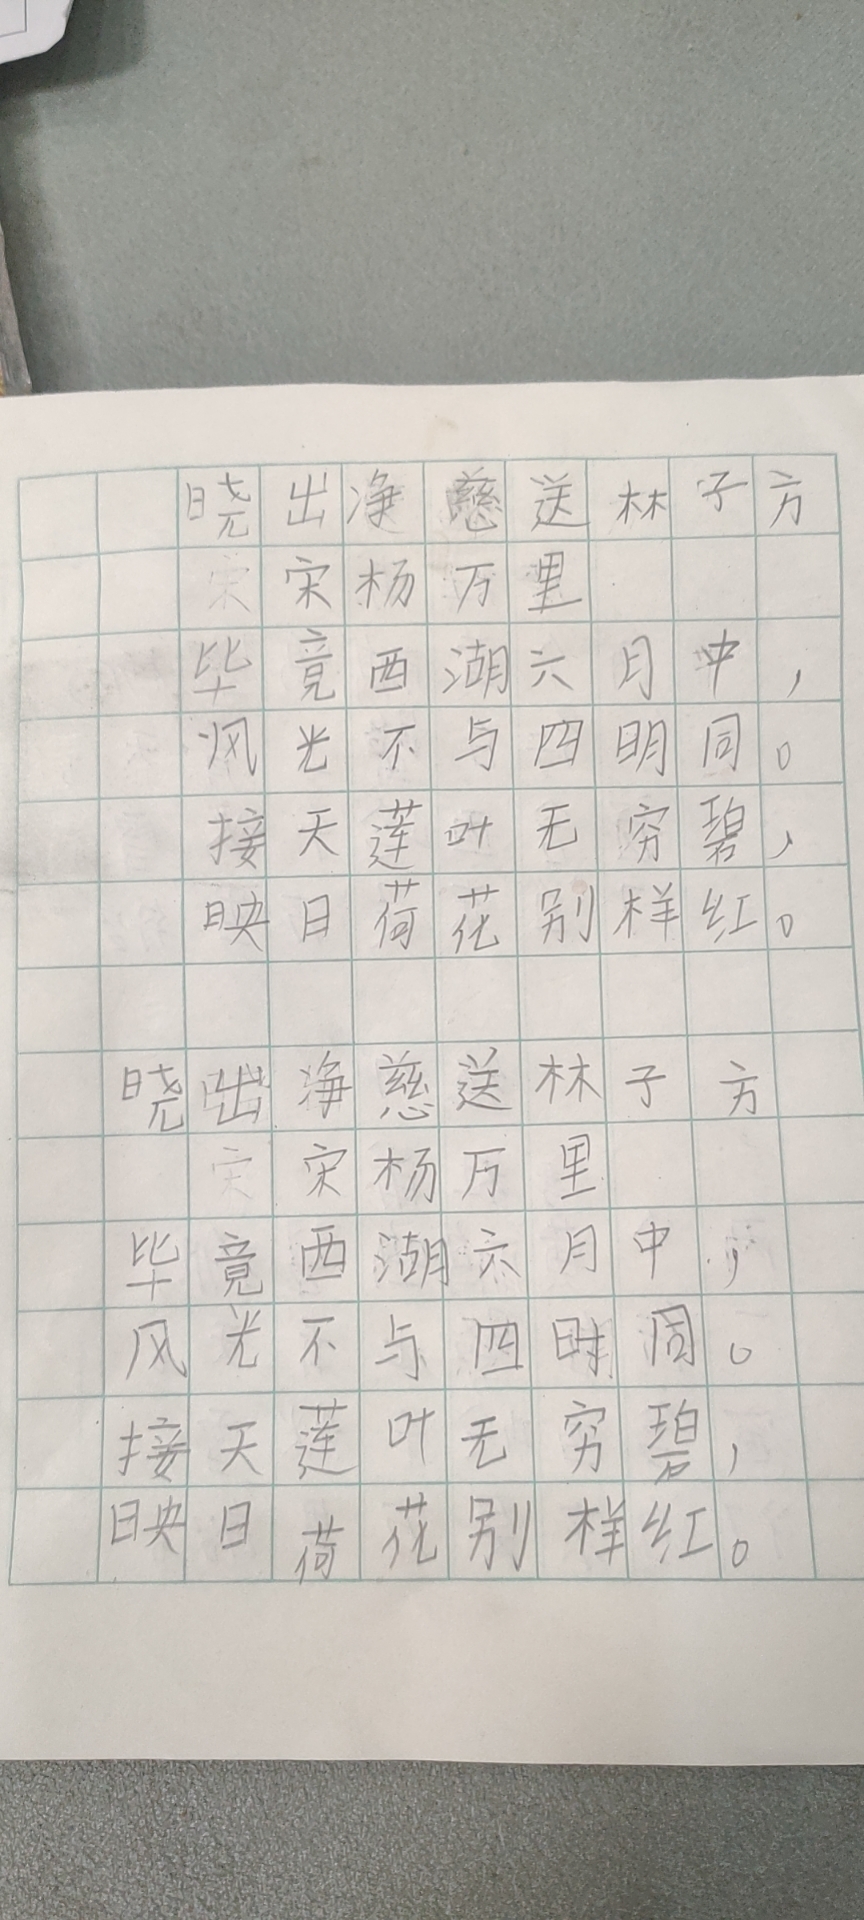 晓出净慈送林子方
宋杨万里
毕竟西湖六月中，
风光不与四明同。
接天莲叶无穷碧，
映日荷花别样红。
晓出净慈送林子方
宋杨万里
毕竟西湖六月中，
风光不与四时同。
接天莲叶无穷碧，
映日荷花别样红。